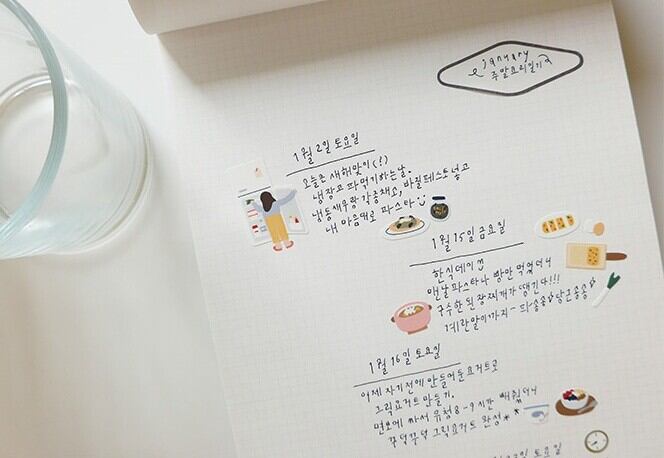 january
주말요리일기
1월 2일 토요일
오늘은 새해맞이(!)
냉장고 파먹기하는날.
냉동새우랑 각종채소, 바질페스토넣고
내 마음대로 파스타
1월 15일 금요일
한식데이
맨날 파스타나 빵만 먹었더니
구수한 된장찌개가 땡긴다!!!
계란말이까지- 파송송 당근송송
1월 16일 토요일
어제 자기전에 만들어둔요거트로
그릭요거트 만들기.
면보에 싸서 유청 8-9시간 빼줬더니
꾸덕꾸덕 그릭요거트 완성**
일 토요일